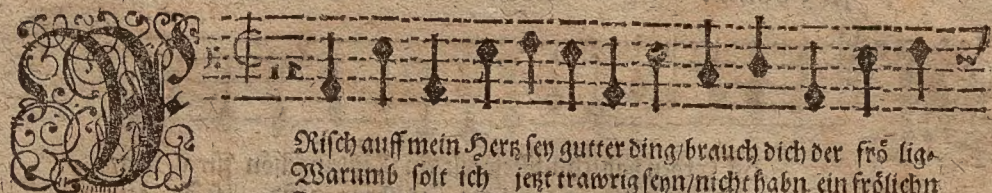 Risch auff mein Hertz sey gutter ding/brauch dich der frö lig⸗
Warumb solt ich jetzt trawrig seyn/nicht habn ein frölichn